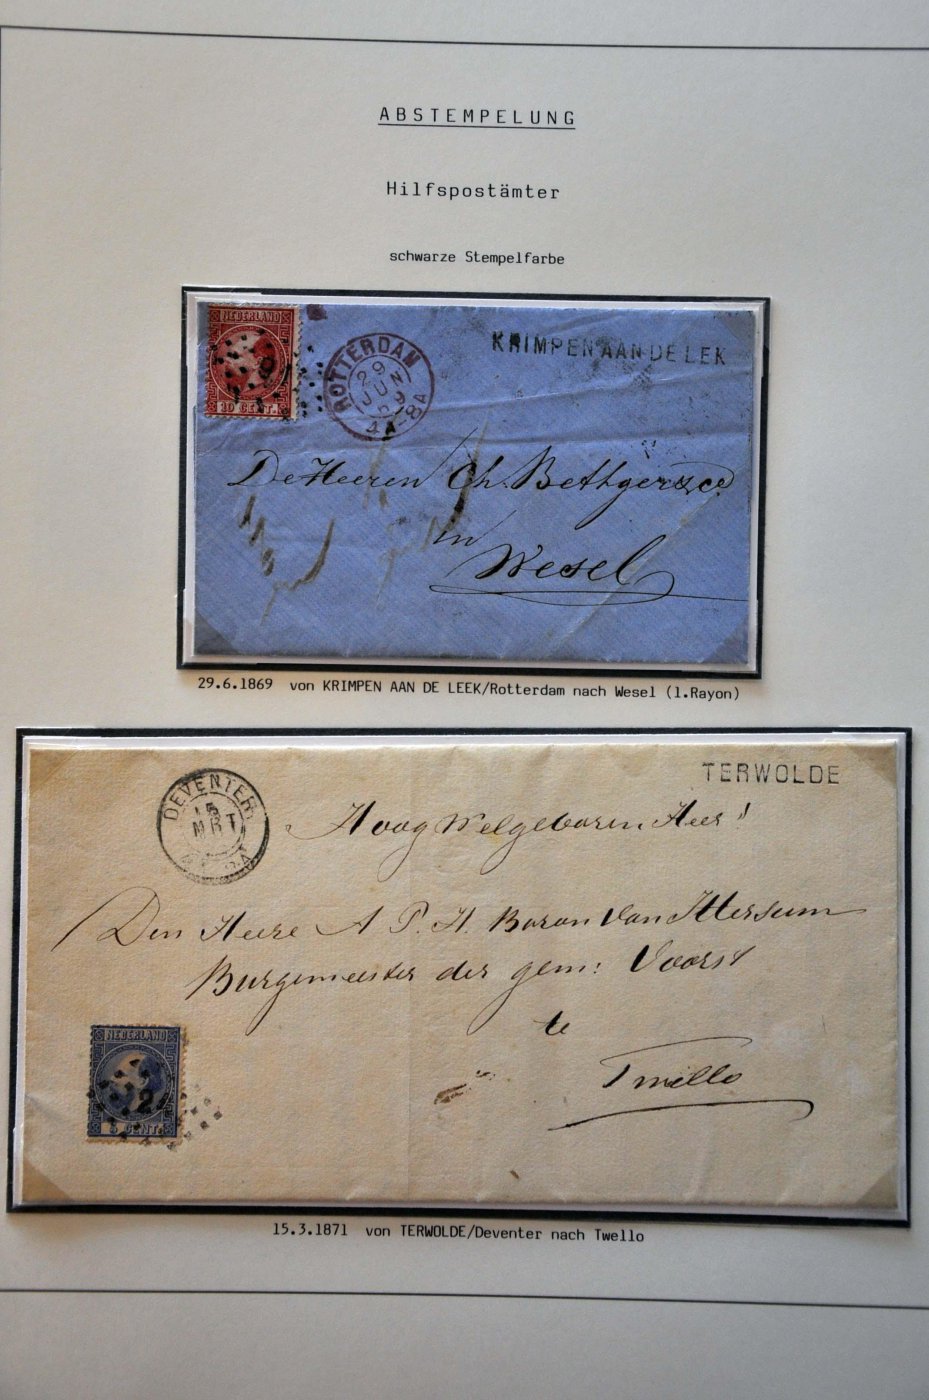 ABSTEMPELUNG
Hilfspostämter
schwarze Stempelfarbe
NEDERLAND
10 CENT.
ROTTERDAM
29
JUN
69
4A-8A
KRIMPEN AAN DE LEK
De Heeren Ch. Bethger & co
in
Wesel
29.6.1869 von KRIMPEN AAN DE LEEK/Rotterdam nach Wesel (1.Rayon)
DEVENTER
15
MRT
TERWOLDE
Hoog Welgeboren Heer!
Den Heere A P. H. Baron Van Ittersum
Burgemeester der gem: Voorst
te
Twello
NEDERLAND
5 CENT.
15.3.1871 von TERWOLDE/Deventer nach Twello